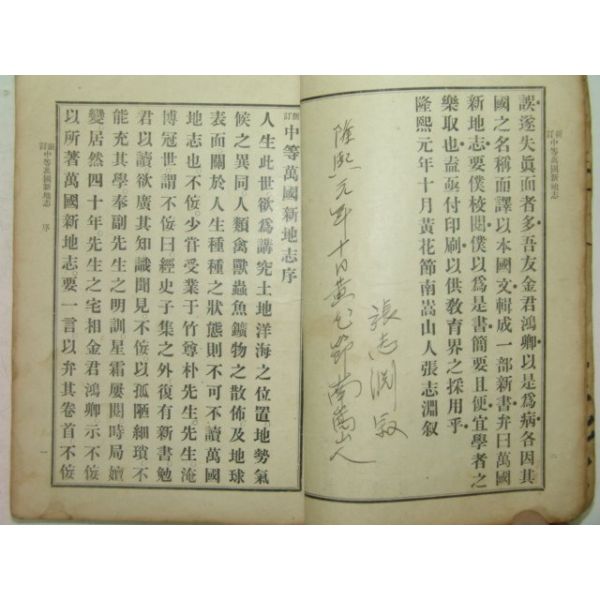 誤遂失眞面者多吾友金君鴻卿以是爲病各因其
國之名稱而譯以本國文輯成一部新書弁曰萬國
新地志要僕校閱僕以爲是書簡要且便宜學者之
樂取也益亟付印刷以供敎育界之採用乎
隆熙元年十月黃花節南嵩山人張志淵叙
隆熙元年十月黃花節南嵩山人
張志淵叙
新訂中等萬國新地志
新訂中等萬國新地志序
人生此世欲爲講究土地洋海之位置地勢氣
候之異同人類禽獸蟲魚鑛物之散佈及地球
表面關於人生種種之狀態則不可不讀萬國
地志也不侫少嘗受業于竹尊朴先生先生淹
博冠世謂不侫曰經史子集之外復有新書勉
君以讀欲廣其知識聞見不侫以孤陋細瑣不
能充其學奉副先生之明訓星霜屢閱時局嬗
變居然四十年先生之宅相金君鴻卿示不侫
以所著萬國新地志要一言以弁其卷首不侫
新訂中等萬國新地志 序
一